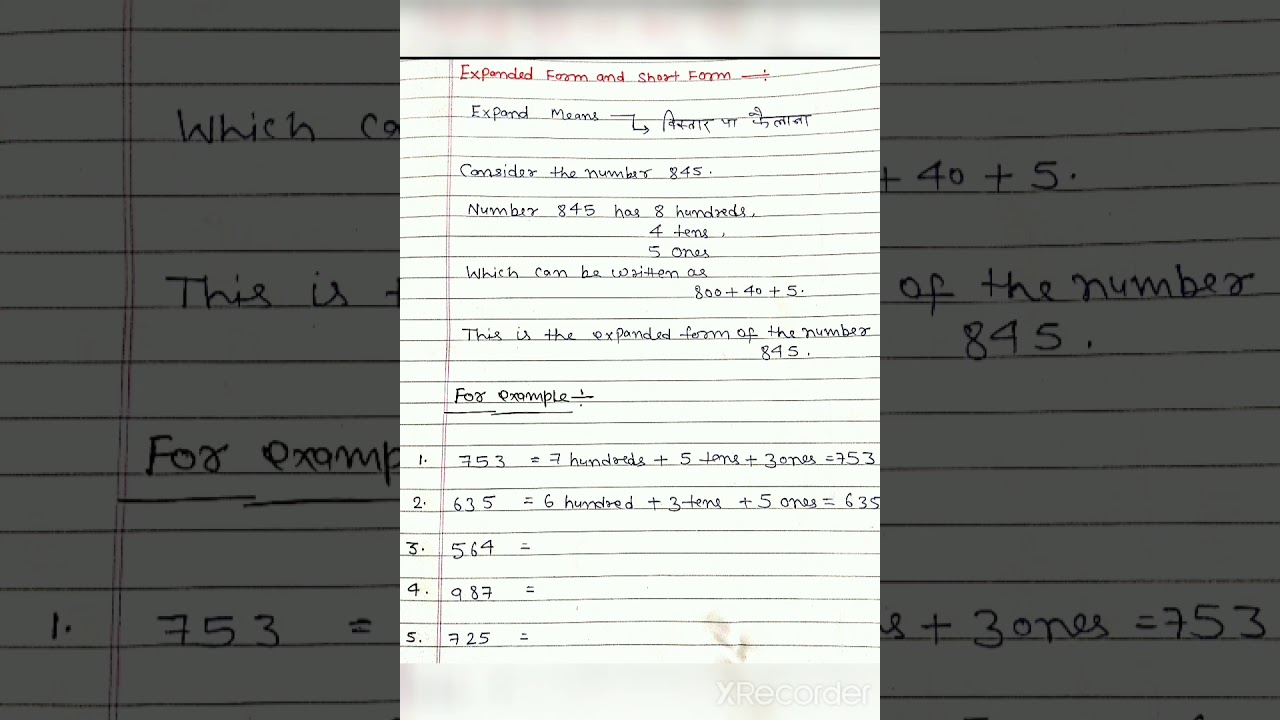 Expanded Form and Short Form ÷
Expand Means → विस्तार या फैलाना
Consider the number 845.
Number 845 has 8 hundreds,
4 tens,
5 ones
Which can be written as
800 + 40 + 5.
This is the expanded form of the number
845.
For example ÷
1. 753 = 7 hundreds + 5 tens + 3 ones = 753
2. 635 = 6 hundred + 3 tens + 5 ones = 635
3. 564 =
4. 987 =
5. 725 =
Which ca
+ 40 + 5.
This is
of the number
845.
For examp
1. 753 =
s + 3 ones = 753
XRecorder